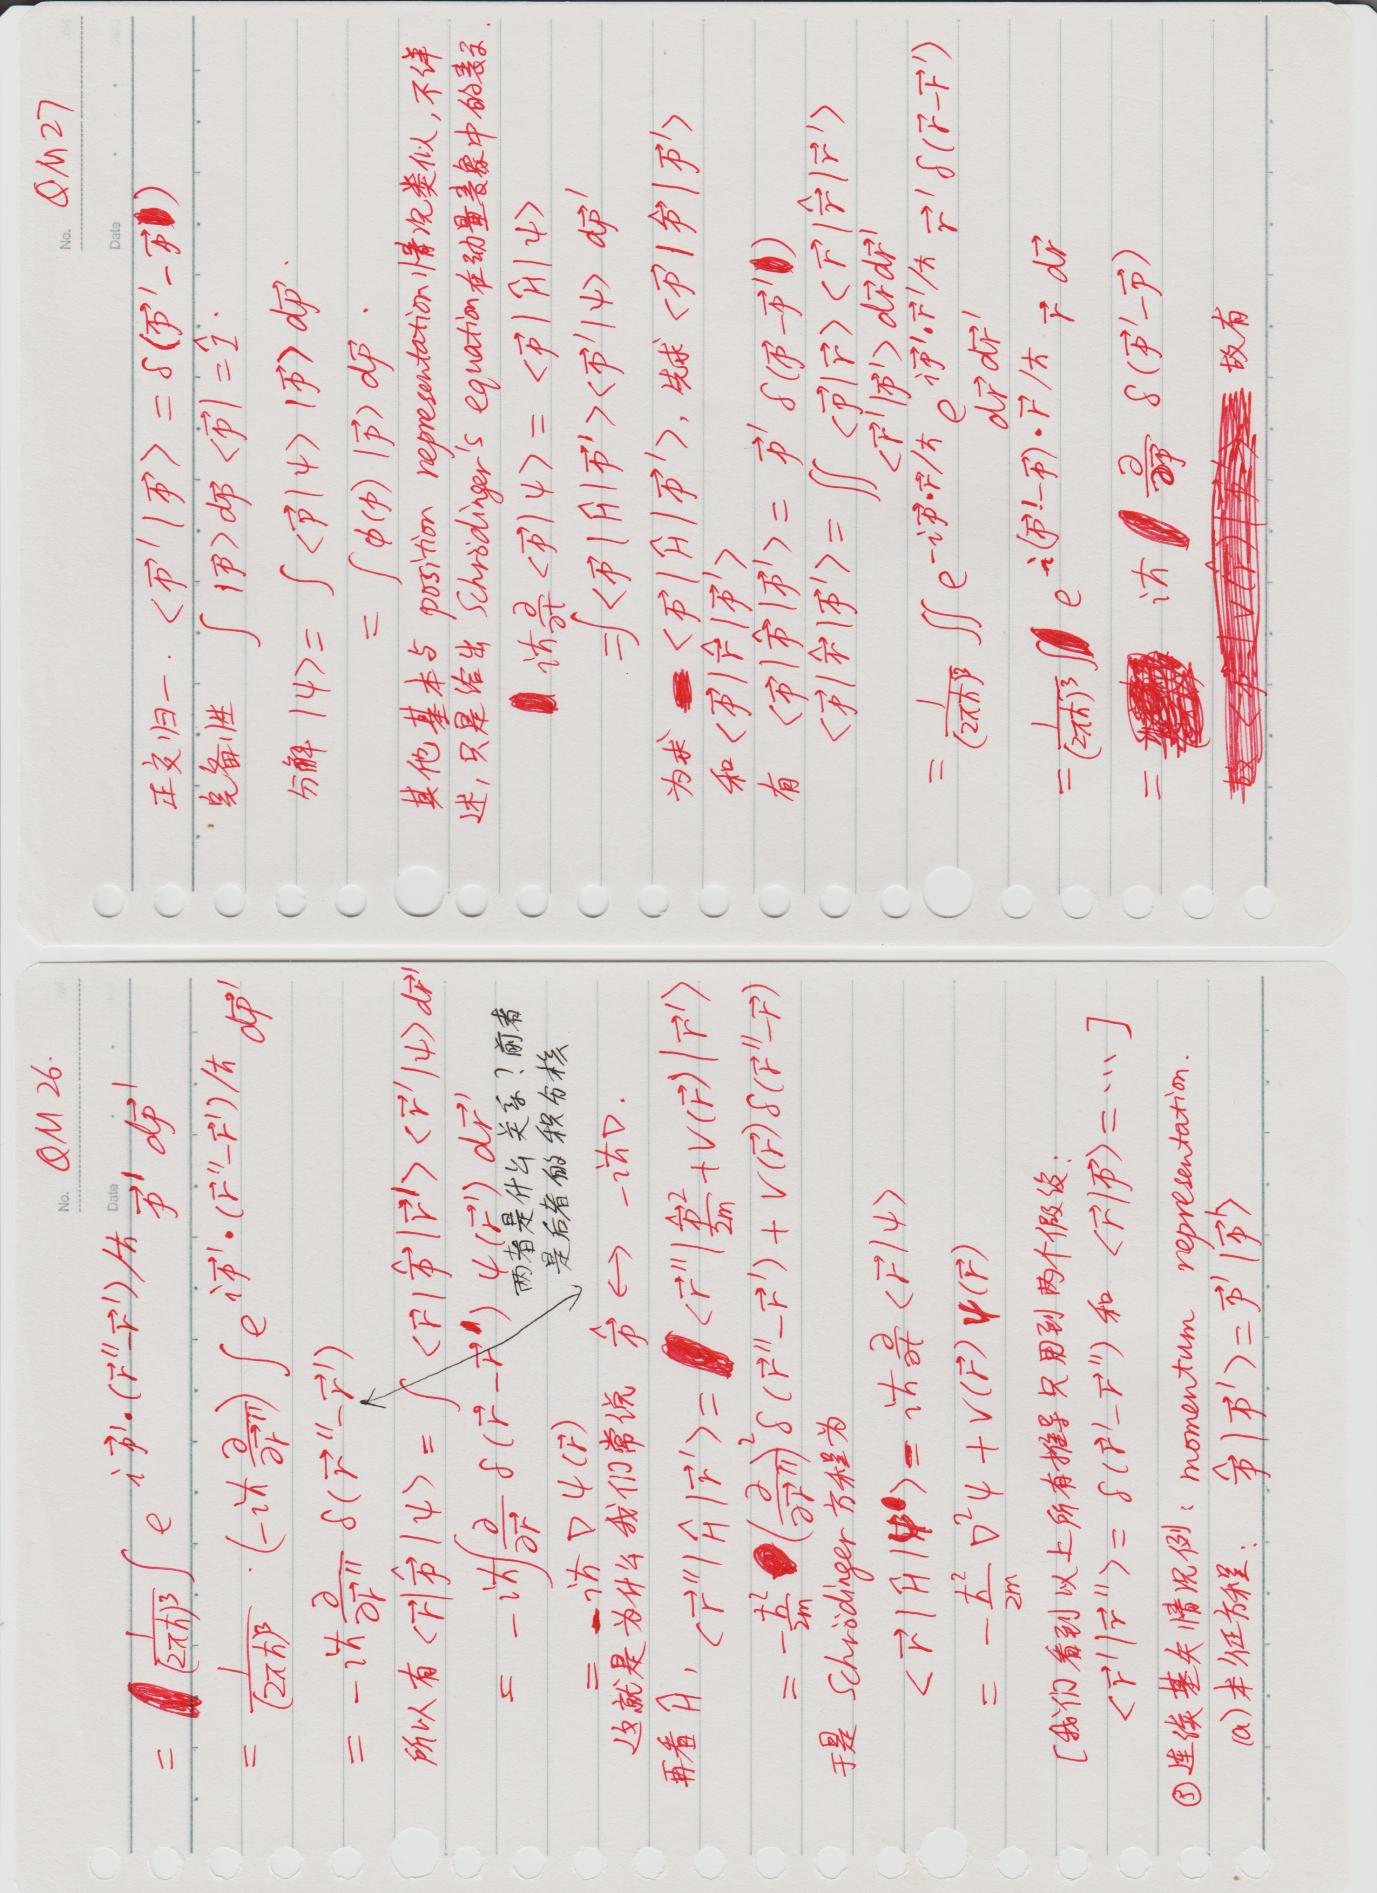 No. QM 26.
Date
= \frac{1}{(2πħ)^3} ∫ e^{i\vec{p}'·(\vec{r}''-\vec{r}')/ħ} \vec{p}' d\vec{p}'
= \frac{1}{(2πħ)^3} · (-iħ \frac{∂}{∂\vec{r}''}) ∫ e^{i\vec{p}'·(\vec{r}''-\vec{r}')/ħ} d\vec{p}'
= -iħ \frac{∂}{∂\vec{r}''} δ(\vec{r}''-\vec{r}')
所以有 <\vec{r}|\hat{\vec{p}}|ψ> = ∫ <\vec{r}|\hat{\vec{p}}|\vec{r}'> <\vec{r}'|ψ> d\vec{r}'
= -iħ ∫ \frac{∂}{∂\vec{r}} δ(\vec{r}-\vec{r}') ψ(\vec{r}') d\vec{r}'
两者是什么关系?前者
是后者的积分核
= -iħ ∇ ψ(\vec{r})
这就是为什么我们常说 \hat{\vec{p}} ↔ -iħ∇.
再看 \hat{H}, <\vec{r}''|\hat{H}|\vec{r}'> = <\vec{r}''|\frac{\hat{\vec{p}}^2}{2m}+V(\vec{r})|\vec{r}'>
= -\frac{ħ^2}{2m} (\frac{∂}{∂\vec{r}''})^2 δ(\vec{r}''-\vec{r}') + V(\vec{r}) δ(\vec{r}''-\vec{r})
于是 Schrödinger 方程为
<\vec{r}|\hat{H}|ψ> = iħ \frac{∂}{∂t} <\vec{r}|ψ>
= -\frac{ħ^2}{2m} ∇^2 ψ + V(\vec{r}) ψ(\vec{r})
[我们看到以上所有推导只用到两个假设:
<\vec{r}'|\vec{r}''> = δ(\vec{r}'-\vec{r}'') 和 <\vec{r}|\vec{p}> = ⋯ ]
③ 连续基矢情况例: momentum representation.
(a) 本征方程: \hat{\vec{p}}|\vec{p}'> = \vec{p}'|\vec{p}'>
No. QM 27
Date
正交归一. <\vec{p}'|\vec{p}> = δ(\vec{p}'-\vec{p})
完备性 ∫ |\vec{p}> d\vec{p} <\vec{p}| = \hat{1}.
分解 |ψ> = ∫ <\vec{p}|ψ> |\vec{p}> d\vec{p}.
= ∫ φ(p) |\vec{p}> d\vec{p}.
其他基本与 position representation 情况类似, 不详
述, 只是给出 Schrödinger's equation 在动量表象中的表示.
iħ \frac{∂}{∂t} <\vec{p}|ψ> = <\vec{p}|\hat{H}|ψ>
= ∫ <\vec{p}|\hat{H}|\vec{p}'><\vec{p}'|ψ> d\vec{p}'
为求 <\vec{p}|\hat{H}|\vec{p}'>, 先求 <\vec{p}|\hat{\vec{p}}|\vec{p}'>
和 <\vec{p}|\hat{\vec{r}}|\vec{p}'>
有 <\vec{p}|\hat{\vec{p}}|\vec{p}'> = \vec{p}' δ(\vec{p}-\vec{p}')
<\vec{p}|\hat{\vec{r}}|\vec{p}'> = ∬ <\vec{p}|\vec{r}> <\vec{r}|\hat{\vec{r}}|\vec{r}'>
<\vec{r}'|\vec{p}'> d\vec{r}d\vec{r}'
= \frac{1}{(2πħ)^3} ∬ e^{-i\vec{p}·\vec{r}/ħ} e^{i\vec{p}'·\vec{r}'/ħ} \vec{r}' δ(\vec{r}-\vec{r}')
d\vec{r} d\vec{r}'
= \frac{1}{(2πħ)^3} ∫ e^{i(\vec{p}'-\vec{p})·\vec{r}/ħ} \vec{r} d\vec{r}
= iħ \frac{∂}{∂\vec{p}} δ(\vec{p}'-\vec{p})
故有